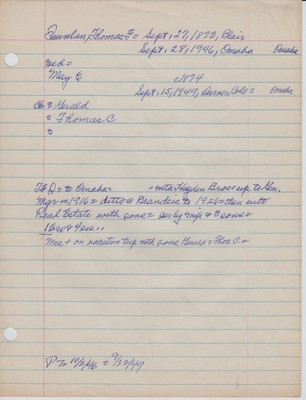 Quinlan, Thomas F = Sept. 27, 1873, Blair
Sept. 28, 1946, Omaha Omaha
Med =
May E c1874
Sept. 15, 1949, Denver, Colo = Omaha
Ch = Gerald
= Thomas C
=
T F Q = to Omaha = = with Hayden Bros = up to Gen.
Mgr in 1916 = ditto @ Brandeis to 1926 = then into
Real Estate with sons = surv by wife & 2 sons =
1 bro & 4 srs..
Mrs + on vacation trip with sons Gerald = Thos C =
10/2/46 = 9/22/49